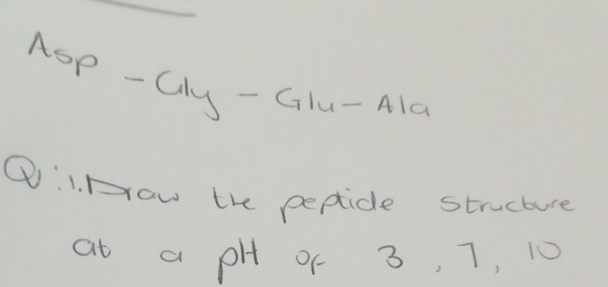 Asp - Gly - Glu - Ala
Q: 1. Draw the peptide structure
at a pH of 3, 7, 10